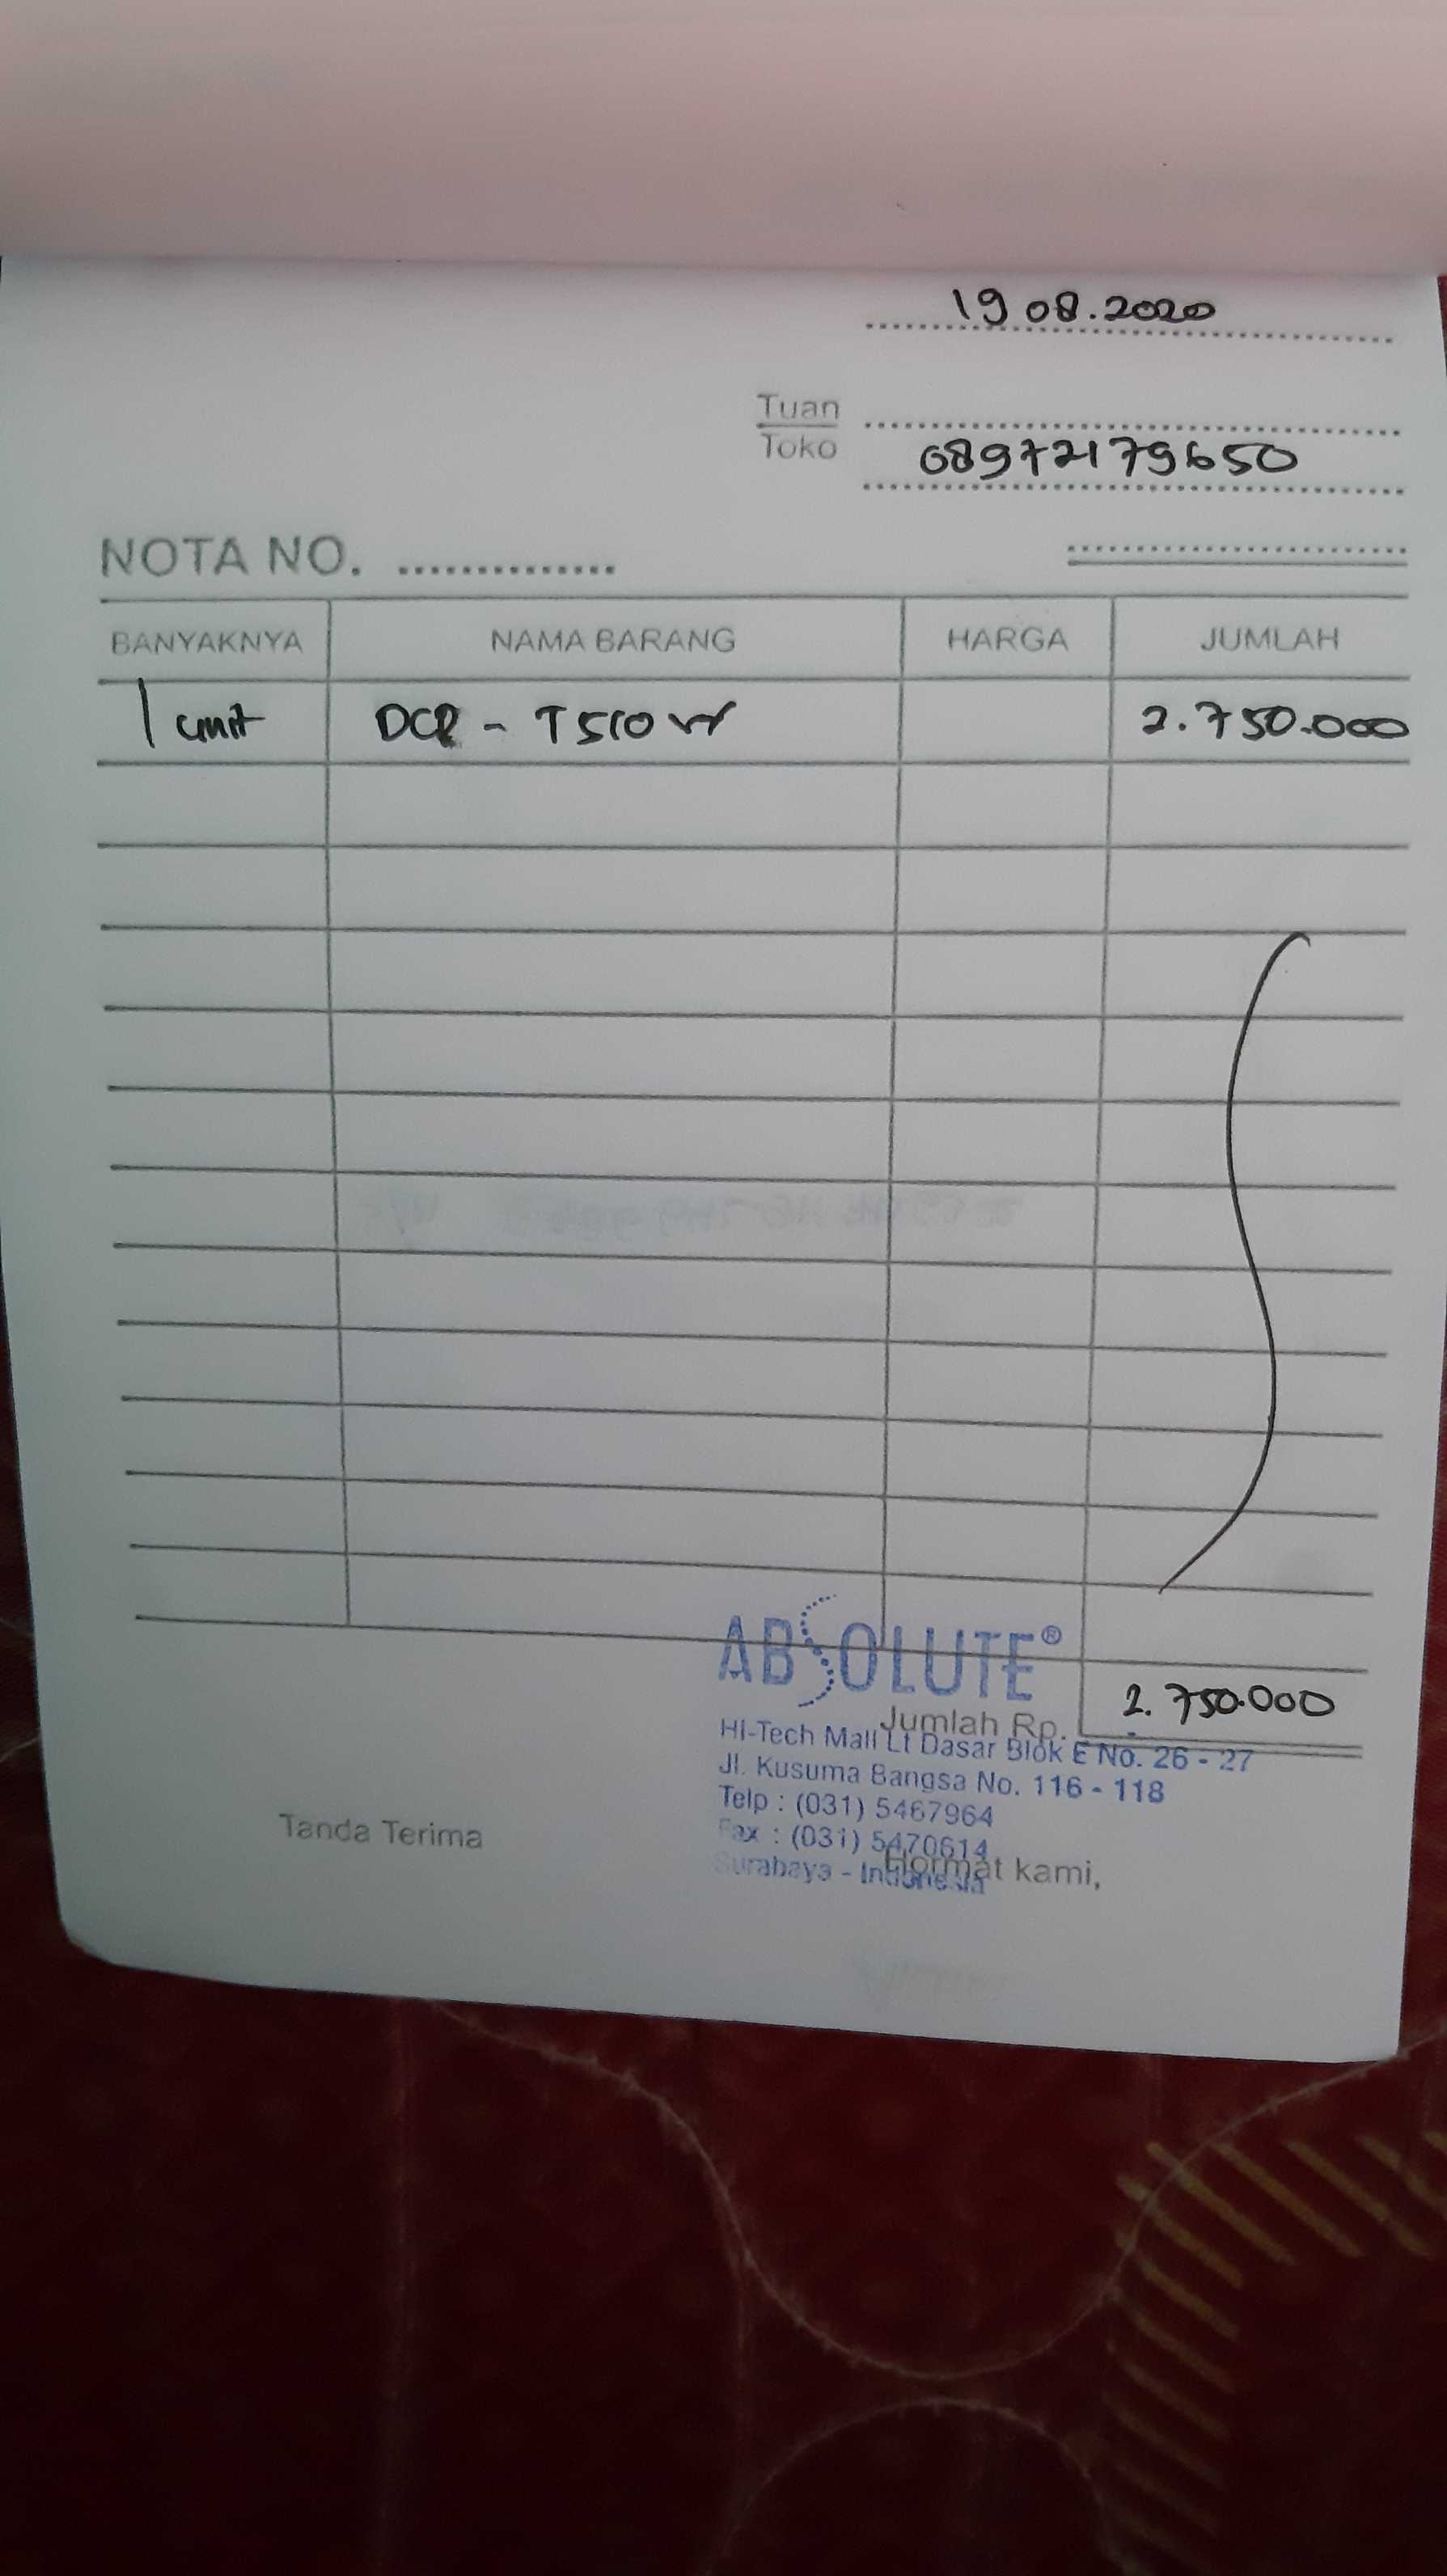 19 08.2020
Tuan
Toko
08972179650
NOTA NO. ..............
BANYAKNYA NAMA BARANG HARGA JUMLAH
1 unit DCP - T510W 2.750.000
ABSOLUTE®
Jumlah Rp. 2.750.000
HI-Tech Mall Lt Dasar Blok E No. 26 - 27
Jl. Kusuma Bangsa No. 116 - 118
Telp : (031) 5467964
Fax : (031) 5470614
Surabaya - Indonesia
Tanda Terima
Hormat kami,